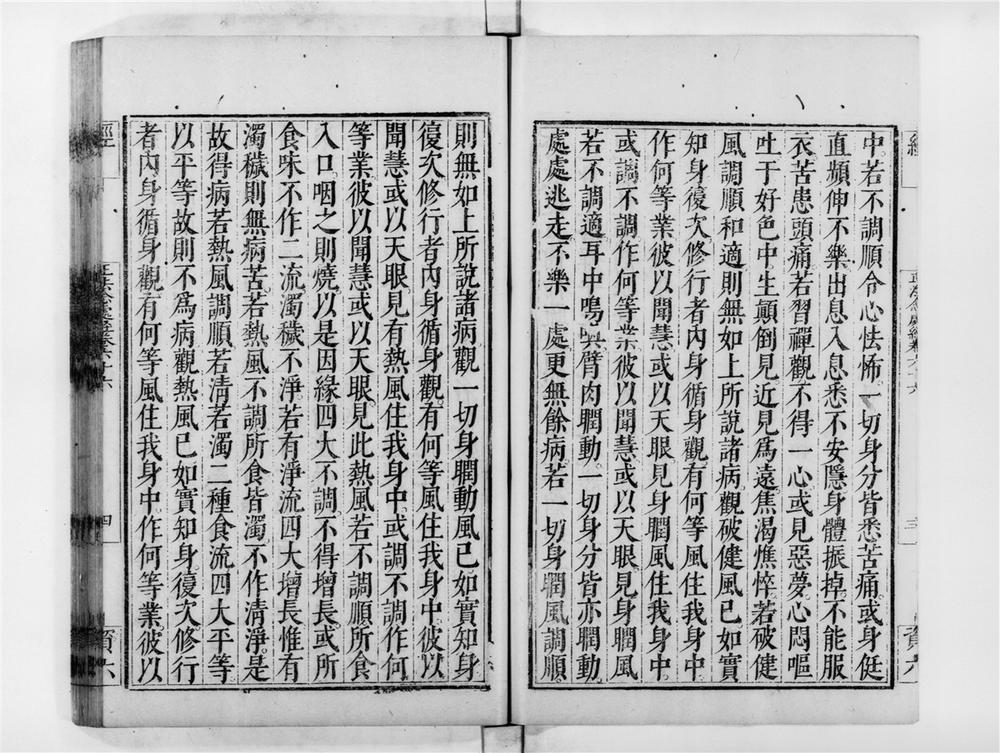 中若不調順令心怯怖一切身分皆悉苦痛或身侹
直頻伸不樂出息入息悉不安隱身體振掉不能服
衣苦患頭痛若習禪觀不得一心或見惡夢心悶嘔
吐于好色中生顛倒見近見爲遠焦渴憔悴若破健
風調順和適則無如上所說諸病觀破健風已如實
知身復次修行者內身循身觀有何等風住我身中
作何等業彼以聞慧或以天眼見身瞤風住我身中
或調不調作何等業彼以聞慧或以天眼見身瞤風
若不調適耳中鳴喚臂肉瞤動一切身分皆亦瞤動
處處逃走不樂一處更無餘病若一切身瞤風調順
則無如上所說諸病觀一切身瞤動風已如實知身
復次修行者內身循身觀有何等風住我身中彼以
聞慧或以天眼見有熱風住我身中或調不調作何
等業彼以聞慧或以天眼見此熱風若不調順所食
入口咽之則燒以是因緣四大不調不得增長或所
食味不作二流濁穢不淨若有淨流四大增長惟有
濁穢則無病苦若熱風不調所食皆濁不作清淨是
故得病若熱風調順若清若濁二種食流四大平等
以平等故則不爲病觀熱風已如實知身復次修行
者內身循身觀有何等風住我身中作何等業彼以
經
正法念處經卷六十六
三
資六
經
正法念處經卷六十六
四
資六